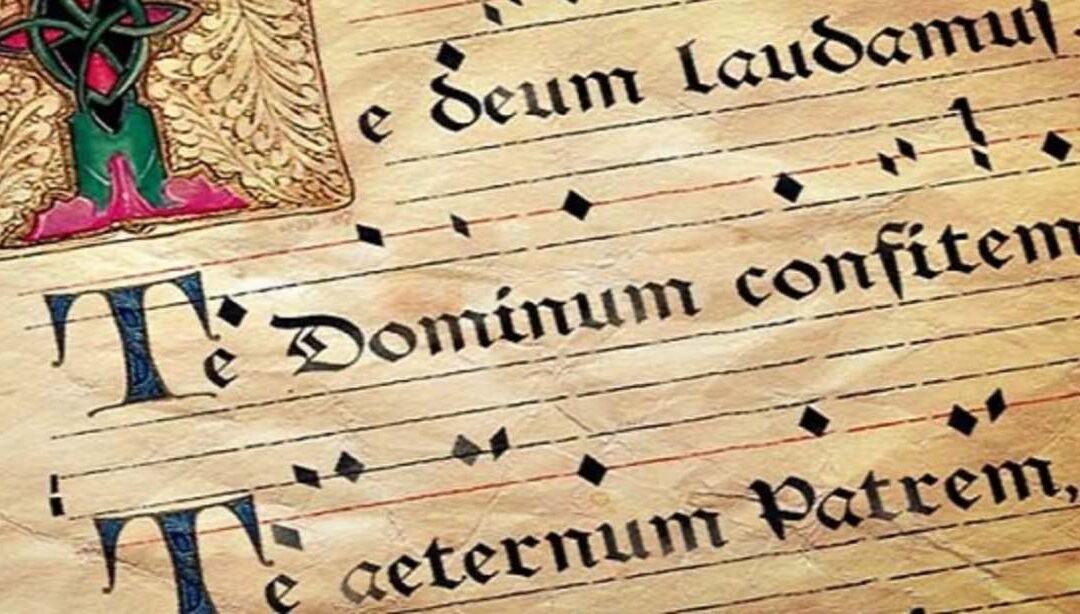 e deum laudamus.
Te Dominum confitem
Te aeternum Patrem,